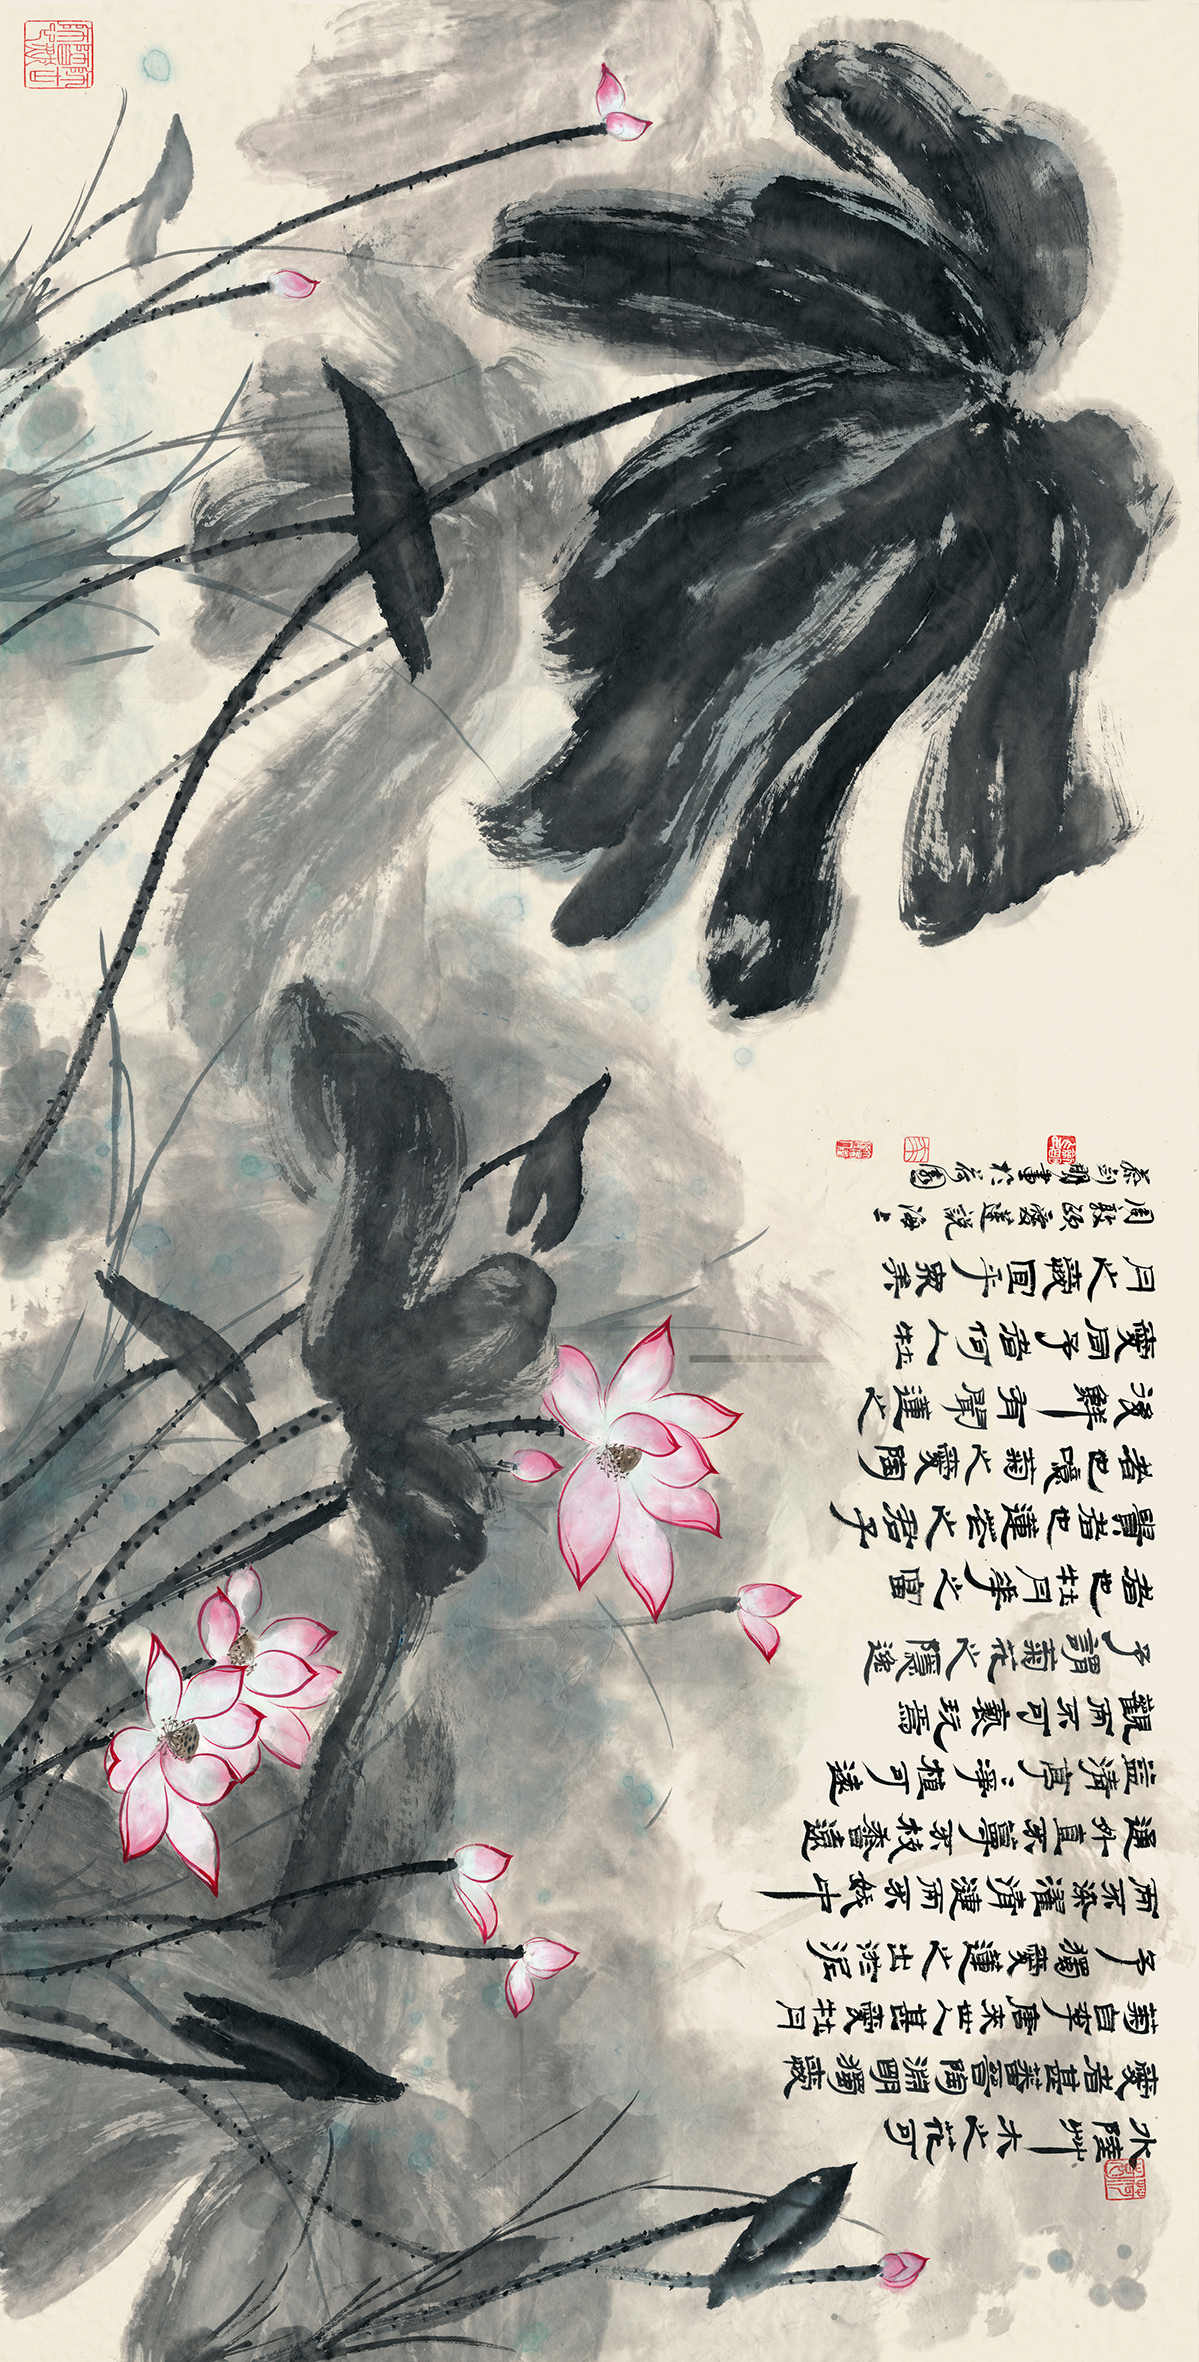 水陸艸木之花可
愛者甚蕃晉陶淵明獨愛
菊自李唐來世人甚愛牡丹
予獨愛蓮之出淤泥
而不染濯清漣而不妖中
通外直不蔓不枝香遠
益清亭〻淨植可遠
觀而不可褻玩焉
予謂菊花之隱逸
者也牡丹華之富
貴者也蓮華之君子
者也噫菊之愛陶
後鮮有聞蓮之
愛同予者何人牡
丹之愛宜乎眾矣
周敦頤愛蓮說海上
秦剑明畫於荷園